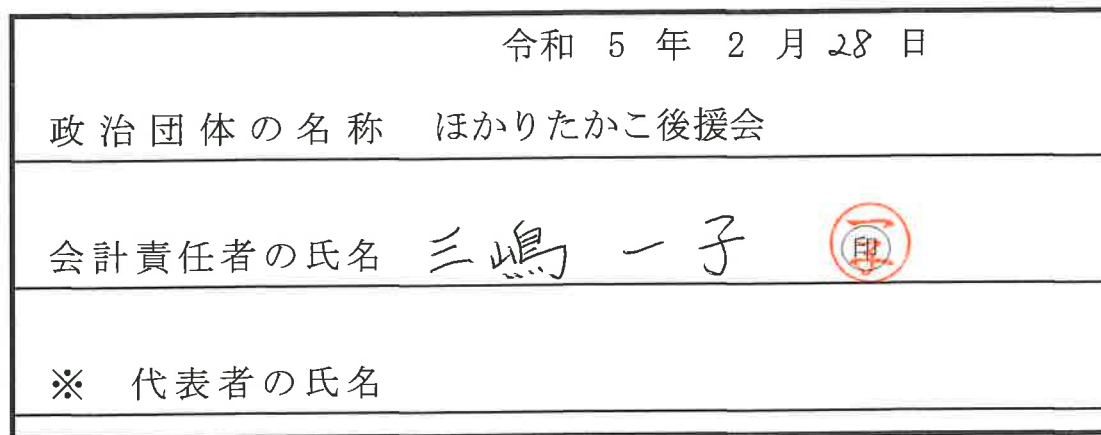 令和 5 年 2 月 28 日
政治団体の名称 ほかりたかこ後援会
会計責任者の氏名 三嶋 一子 印
※ 代表者の氏名